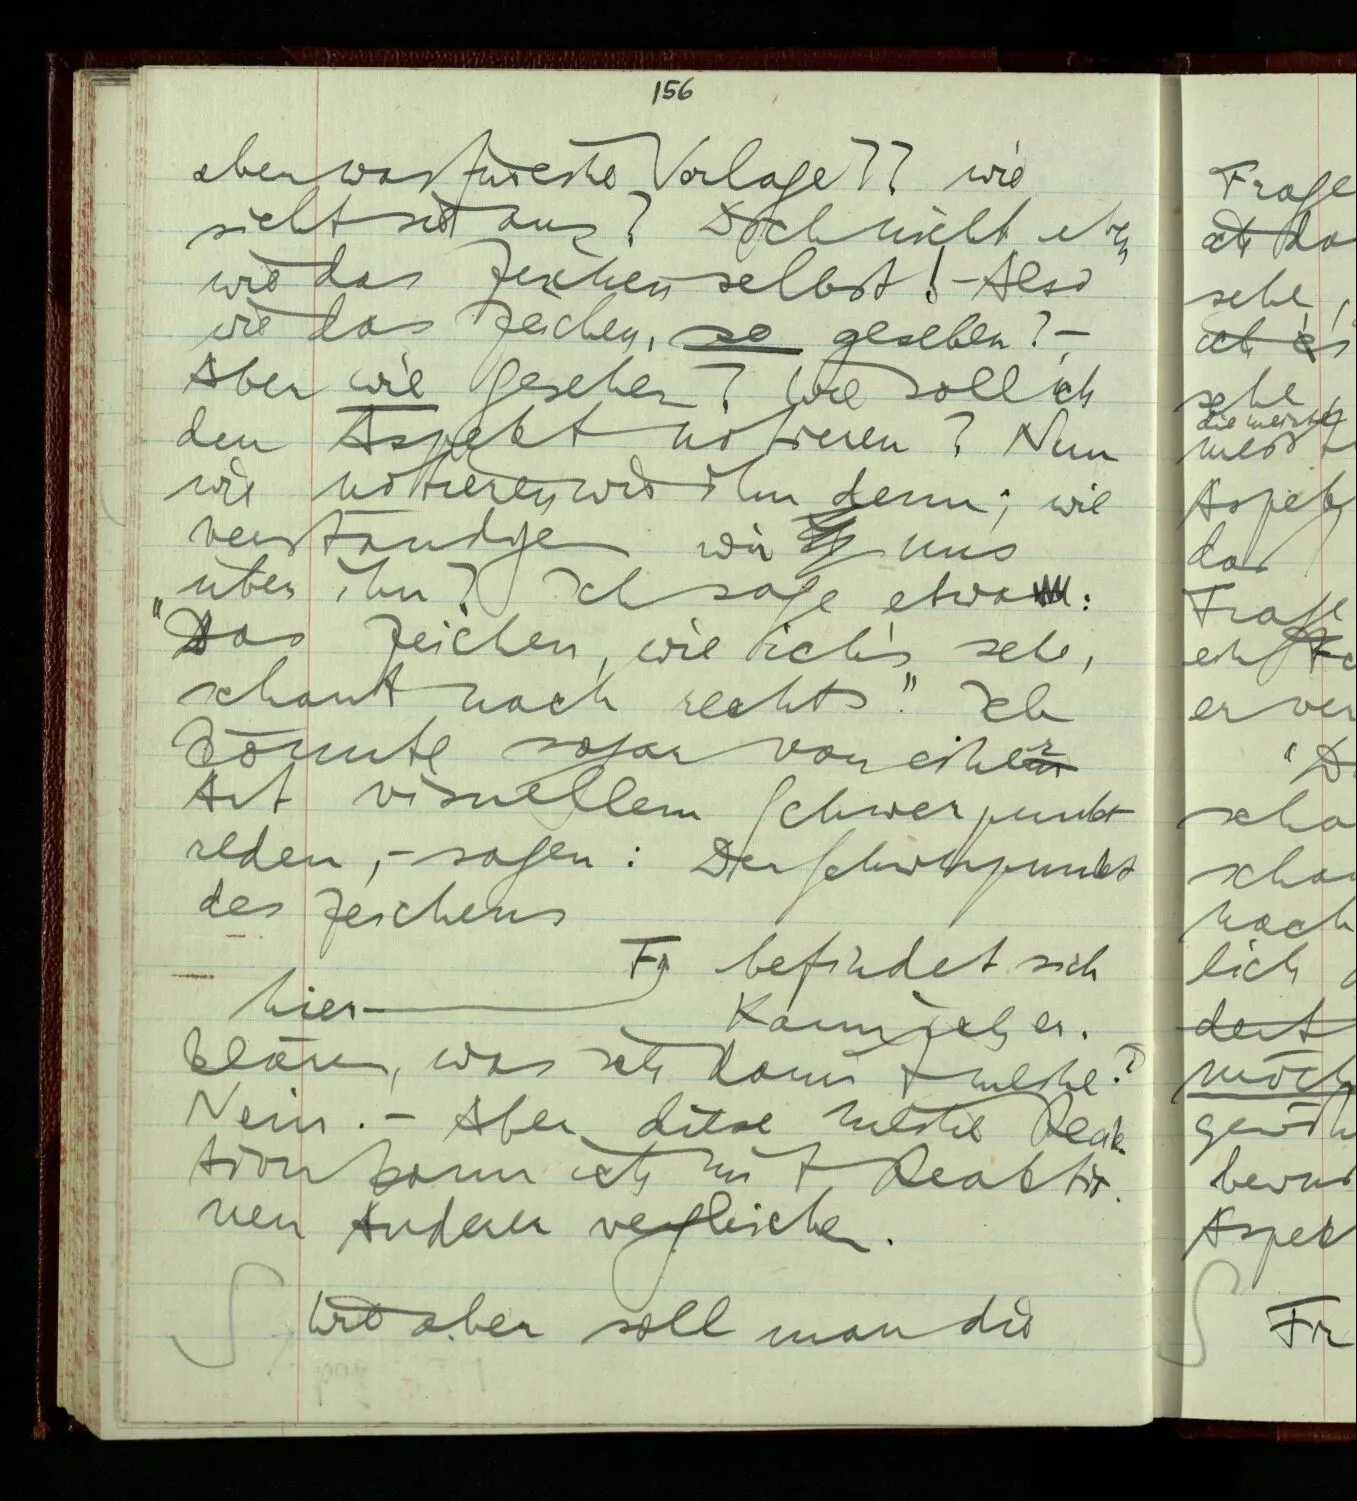 156
eben was für eine Vorlage?? wie
sieht sie aus? Doch nicht eben
wie das Zeichen selbst! – Also
wie das Zeichen, so gesehen? –
Aber wie gesehen? Wie soll ich
den Aspekt notieren? Nun
wie notieren wir ihn denn; wie
verständigen wir uns
über ihn? Ich sage etwa:
"Das Zeichen, wie ich's sehe,
schaut nach rechts." Ich
könnte sogar von einer
Art visuellem Schwerpunkt
reden, – sagen: Der Schwerpunkt
des Zeichens
F befindet sich
hier
Kann ich er-
klären, was ich damit meine?
Nein. – Aber diese meine Reak-
tion kann ich mit Reaktio-
nen Anderer vergleichen.
Wie aber soll man die
Frage
ich da
sehe,
ich
sehe
die meisten
Aspek
das
Frage
er ver
"D
scha
schau
nach
lich
deut
möch
gewöh
bewus
Aspek
F